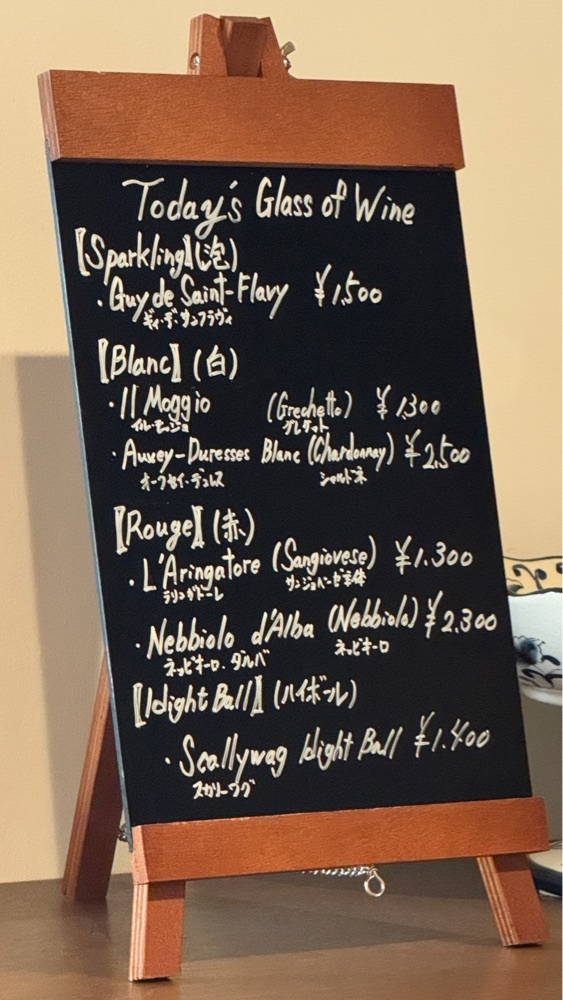 Today's Glass of Wine
【Sparkling】(泡)
・Guy de Saint-Flavy ¥1,500
ギィ・デ・サンフラヴィ
【Blanc】(白)
・Il Moggio (Grechetto) ¥1,300
イル・モッジョ グレケット
・Auxey-Duresses Blanc (Chardonnay) ¥2,500
オークセイ・デュレス シャルドネ
【Rouge】(赤)
・L'Aringatore (Sangiovese) ¥1,300
ラリンガトーレ サンジョベーゼ主体
・Nebbiolo d'Alba (Nebbiolo) ¥2,300
ネッビオーロ・ダルバ ネッビオーロ
【Hight Ball】(ハイボール)
・Scallywag Hight Ball ¥1,400
スカリーワグ